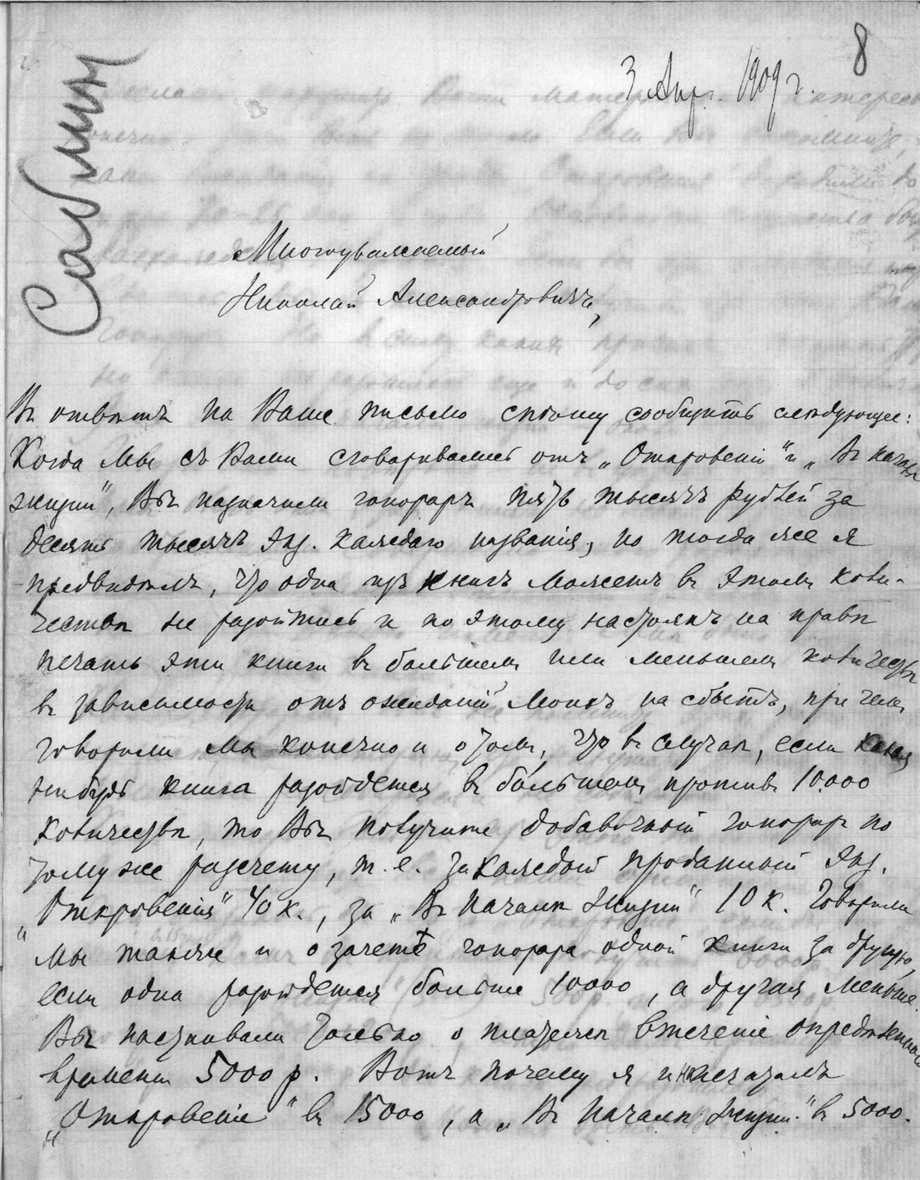 8
3 Апр. 1909 г.
Саблин
Многоуважаемый
Николай Александровичъ,
Въ отвѣтъ на Ваше письмо спѣшу сообщить слѣдующее:
Когда мы съ Вами сговаривались отъ „Откровеній" и „Въ началѣ
жизни", Вы назначили гонораръ пять тысячъ рублей за
десять тысячъ экз. каждаго названія, но тогда же я
предвидѣлъ, что одна изъ книгъ можетъ въ этомъ коли-
чествѣ не разойтись и поэтому настоялъ на правѣ
печатать эти книги въ большемъ или меньшемъ количествѣ
въ зависимости отъ ожиданій моихъ на сбытъ, при чемъ
говорили мы конечно и о томъ, что въ случаѣ, если какая
нибудь книга разойдется въ большемъ противъ 10.000
количествѣ, то Вы получите добавочный гонораръ по
тому же разсчету, т.е. за каждый проданный экз.
„Откровенія" 40 к., за „Въ началѣ жизни" 10 к. Говорили
мы также и о зачетѣ гонорара одной книги за другую,
если одна разойдется больше 10000, а другая меньше.
Вы настаивали только о платежѣ втеченіе опредѣленнаго
времени 5000 р. Вотъ почему я и напечаталъ
„Откровеніе" въ 15000, а „Въ началѣ жизни" въ 5000.